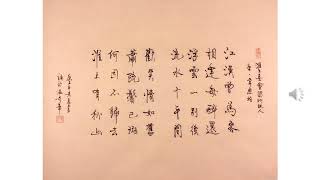 淮上喜會梁川故人
唐 韋應物
江漢曾為客
相逢每醉還
浮雲一別後
流水十年間
歡笑情如舊
蕭疏鬢已斑
何因不歸去
淮上有秋山